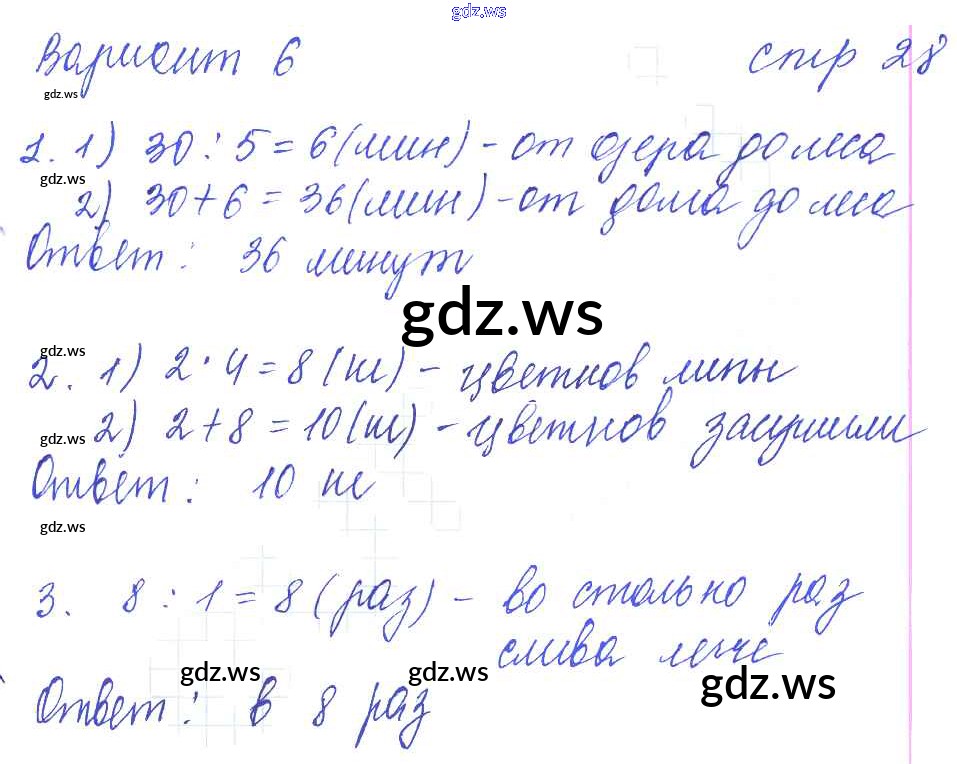 gdz.ws
Вариант 6 стр 28
gdz.ws
1. 1) 30 : 5 = 6 (мин) - от озера до леса
gdz.ws
2) 30 + 6 = 36 (мин) - от дома до леса
Ответ : 36 минут
gdz.ws
gdz.ws
2. 1) 2 · 4 = 8 (кг) - цветков липы
gdz.ws 2) 2 + 8 = 10 (кг) - цветков засушили
Ответ : 10 кг
gdz.ws
3. 8 : 1 = 8 (раз) - во столько раз
слива легче
gdz.ws gdz.ws gdz.ws
Ответ : в 8 раз